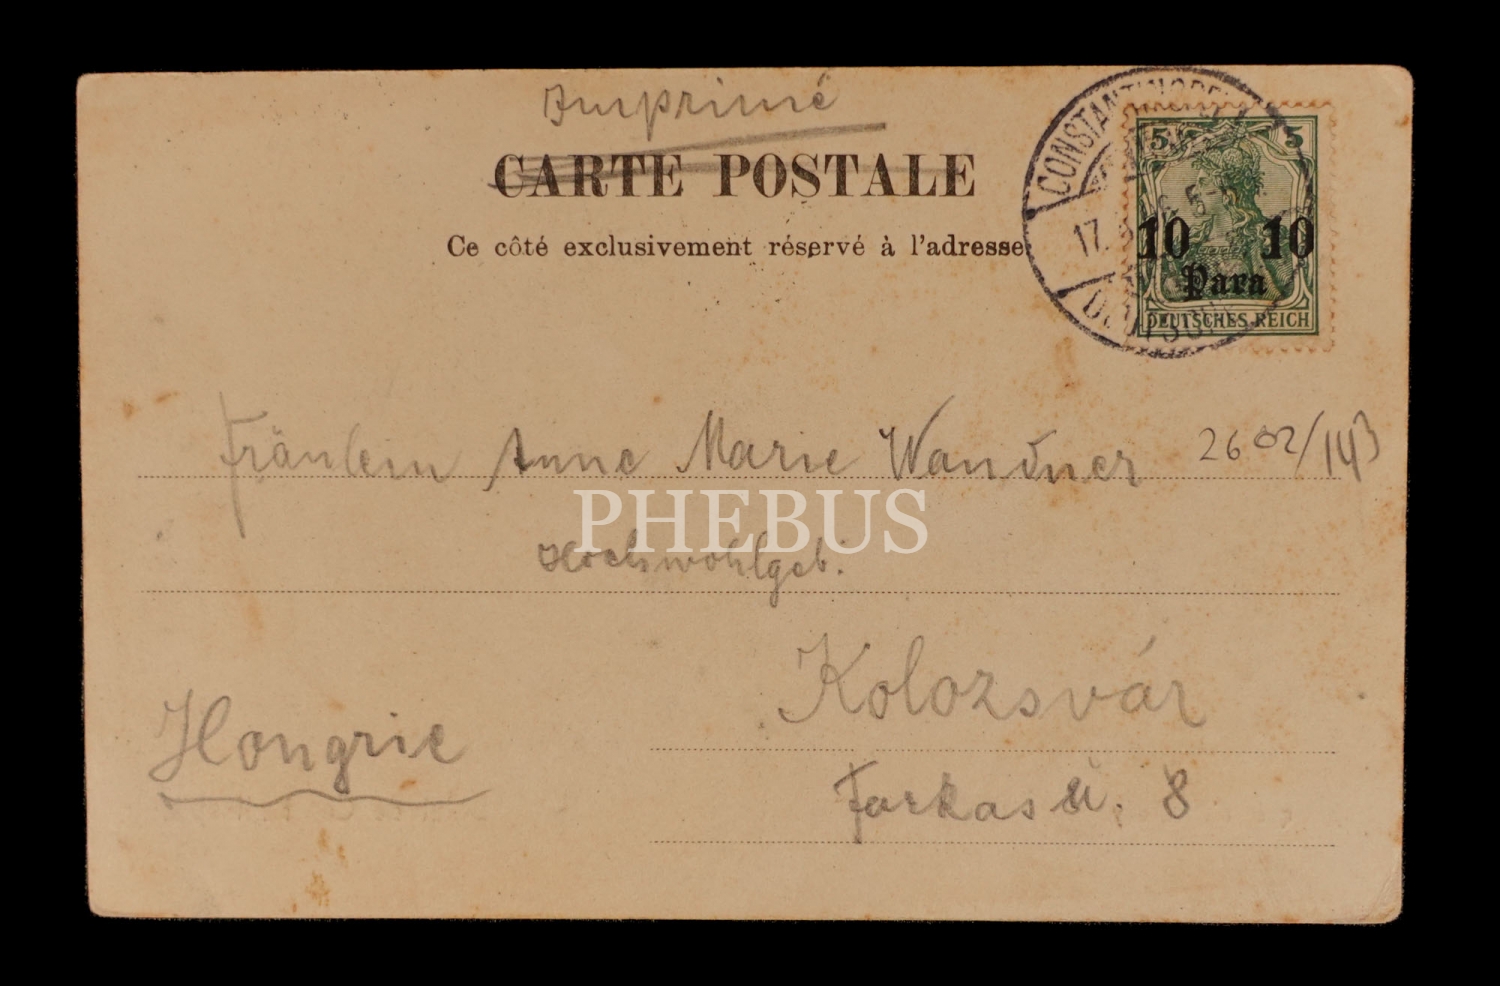 Imprimé
CARTE POSTALE
Ce côté exclusivement réservé à l'adresse
CONSTANTINOPEL
17.
5 5
10 10
Para
DEUTSCHES REICH
Fräulein Anne Marie Wandner
2602/143
PHEBUS
Hochwohlgeb.
Kolozsvár
Hongrie
Farkas u. 8